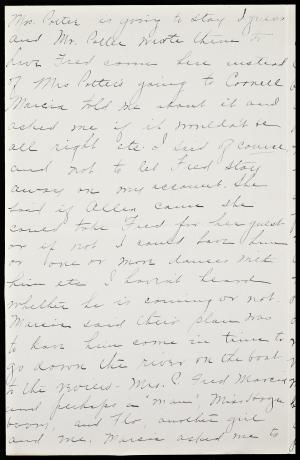 Mrs. Potter is going to stay I guess
and Mr. Potter wrote them to
have Fred come here instead
of Mrs Potter's going to Cornell
Marcia told me about it and
asked me if it wouldn't be
all right etc. I said of course
and not to let Fred stay
away on my account. She
said if Allen came she
could take Fred for her guest
or if not I could have him
or one or more dances with
him etc I haven't heard
whether he is coming or not.
Marcia said their plan was
to have him come in time to
go down the river on the boat
to the races - Mrs. P. Fred Marcia
and perhaps a "man", Miss
boom, and Flo, another girl
and me. Marcia asked me to